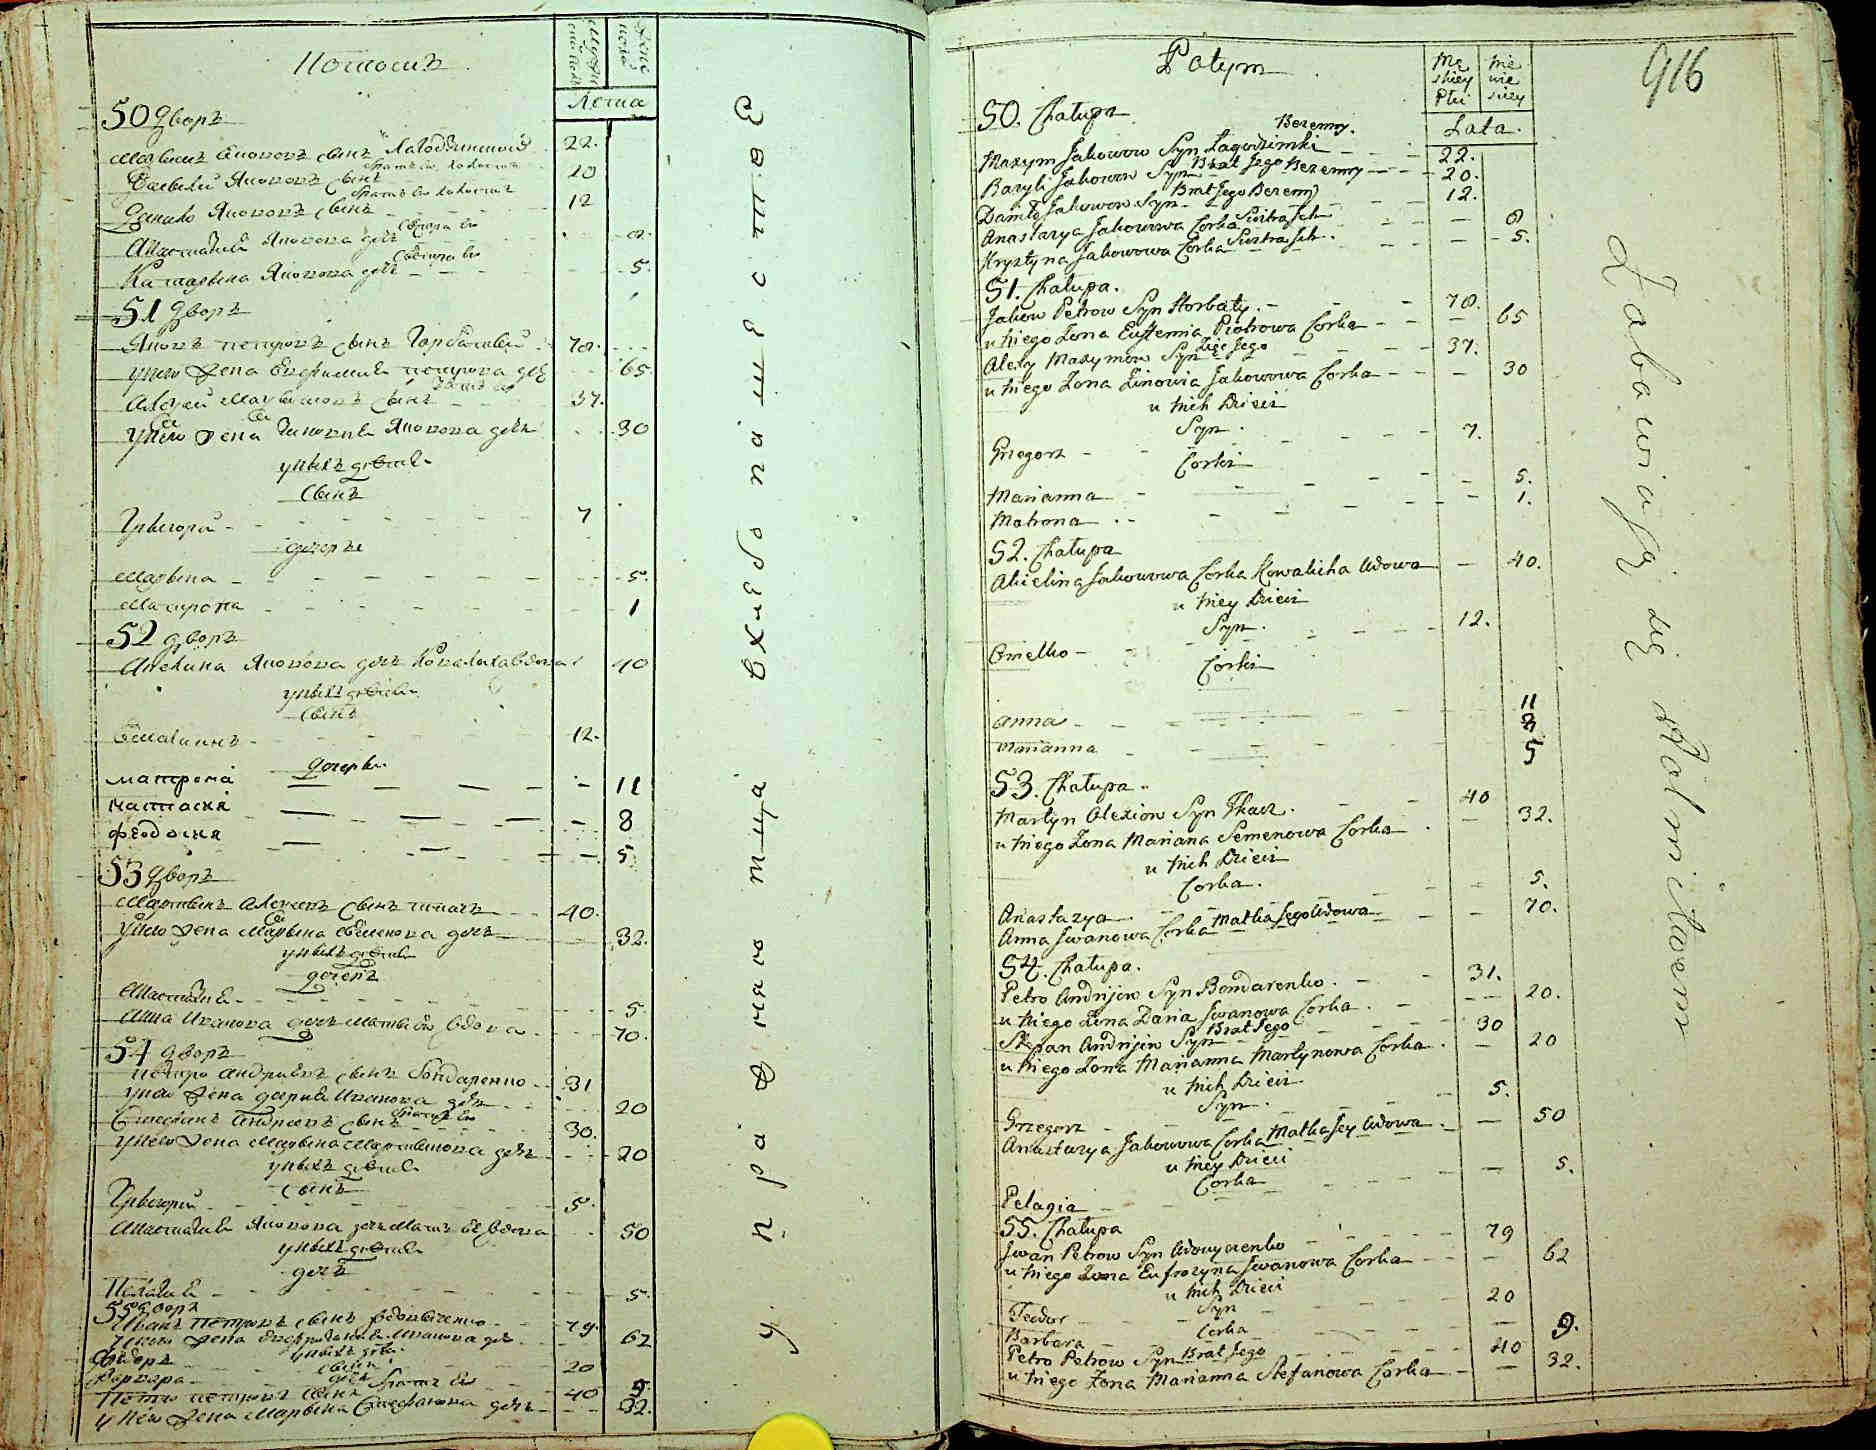 Потомъ
Лета
50 Дворъ
22.
Василий Якововъ сынъ
20
Данило Якововъ сынъ
12
Анастасия Яковова дочъ
Катарына Яковова дочъ
5.
51 Дворъ
Яковъ петровъ сынъ Горбатый
70.
у него Жена Евфимия петрова доч
65.
Алексей Максымовъ сынъ
37.
у него Жена Зиновия Яковова дочъ
30
у ныхъ дѣти
Сынъ
Грыгорий
7
дочеры
Марына
5.
Матрона
1
52 дворъ
Акелина Яковова дочъ Ковалиха вдова
40
у ныхъ дѣти
Сынъ
12.
дочеры
матрона
11
настасия
8
феодосия
5
53 Дворъ
Мартынъ Алексеевъ сынъ ткачъ
40.
у него Жена Марына Семенова дочъ
32.
у ныхъ дѣти
дочеръ
Анастасия
5.
Анна Иванова дочъ Мать его вдова
70.
54 дворъ
петро андриевъ сынъ бондаренко
31
у него Жена дария Иванова дочъ
20
Стефанъ Андреевъ сынъ братъ его
30.
у него Жена Марына Мартынова дочъ
20
у ныхъ дѣти
Сынъ
Грыгорий
5.
Анастасия Яковова дочъ Мать ее вдова
50
у ныхъ дѣти
дочъ
Пелагия
5.
55 дворъ
Иванъ петровъ сынъ вдовыченко
79.
у него Жена Евфросиния Иванова доч
62
у ныхъ дѣти
сынъ
Фидоръ
20
дочъ
Варвара
9
Петро петровъ сынъ братъ его
40
у него Жена Марына Стефанова дочъ
32.
Potym
Męskiey Płci
Lata.
916
50. Chałupa
Maxym Jakowow Syn Łagodzinski Bezenny.
22.
Bazyli Jakowow Syn Brat Jego Bezenny
20.
Daniło Jakowow Syn Brat Jego Bezenny
12.
Anastazya Jakowowa Corka Siostra Ich
8
Krystyna Jakowowa Corka Siostra Ich.
5.
51. Chałupa.
Jakow Petrow Syn Horbaty.
70.
u niego Zona Eufemia Piotrowa Corka
65
Alexy Maxymow Syn Zięć Jego
37.
u niego Zona Zinowia Jakowowa Corka
30
u nich Dzieci
Syn.
Grzegorz
7.
Corki
Marianna
5.
Matrona
1.
52. Chałupa
Akielina Jakowowa Corka Kowalicha Wdowa
40.
u niey Dzieci
Syn.
Omelko
12.
Corki
11
Anna
8
Marianna
5
53. Chałupa.
Martyn Alexiow Syn Tkacz.
40
u niego Zona Mariana Semenowa Corka
32.
u nich Dzieci
Corka.
Anastazya
5.
Anna Jwanowa Corka Matka Jego Wdowa
70.
54. Chałupa.
Petro Andrijow Syn Bondarenko.
31.
u niego Zona Daria Jwanowa Corka.
20.
Stepan Andrijow Syn Brat Jego
30
u niego Zona Marianna Martynowa Corka.
20
u nich Dzieci.
Syn.
Grzegorz
5.
Anastazya Jakowowa Corka Matka Jey Wdowa
50
u niey Dzieci
Corka
Pelagia
5.
55. Chałupa
Jwan Petrow Syn Wdowyczenko
79
u niego Zona Eufrozyna Jwanowa Corka
62
u nich Dzieci
Syn
Teodor
20
Corka
Barbara
9.
Petro Petrow Syn Brat Jego
40
u niego Zona Marianna Stefanowa Corka
32.